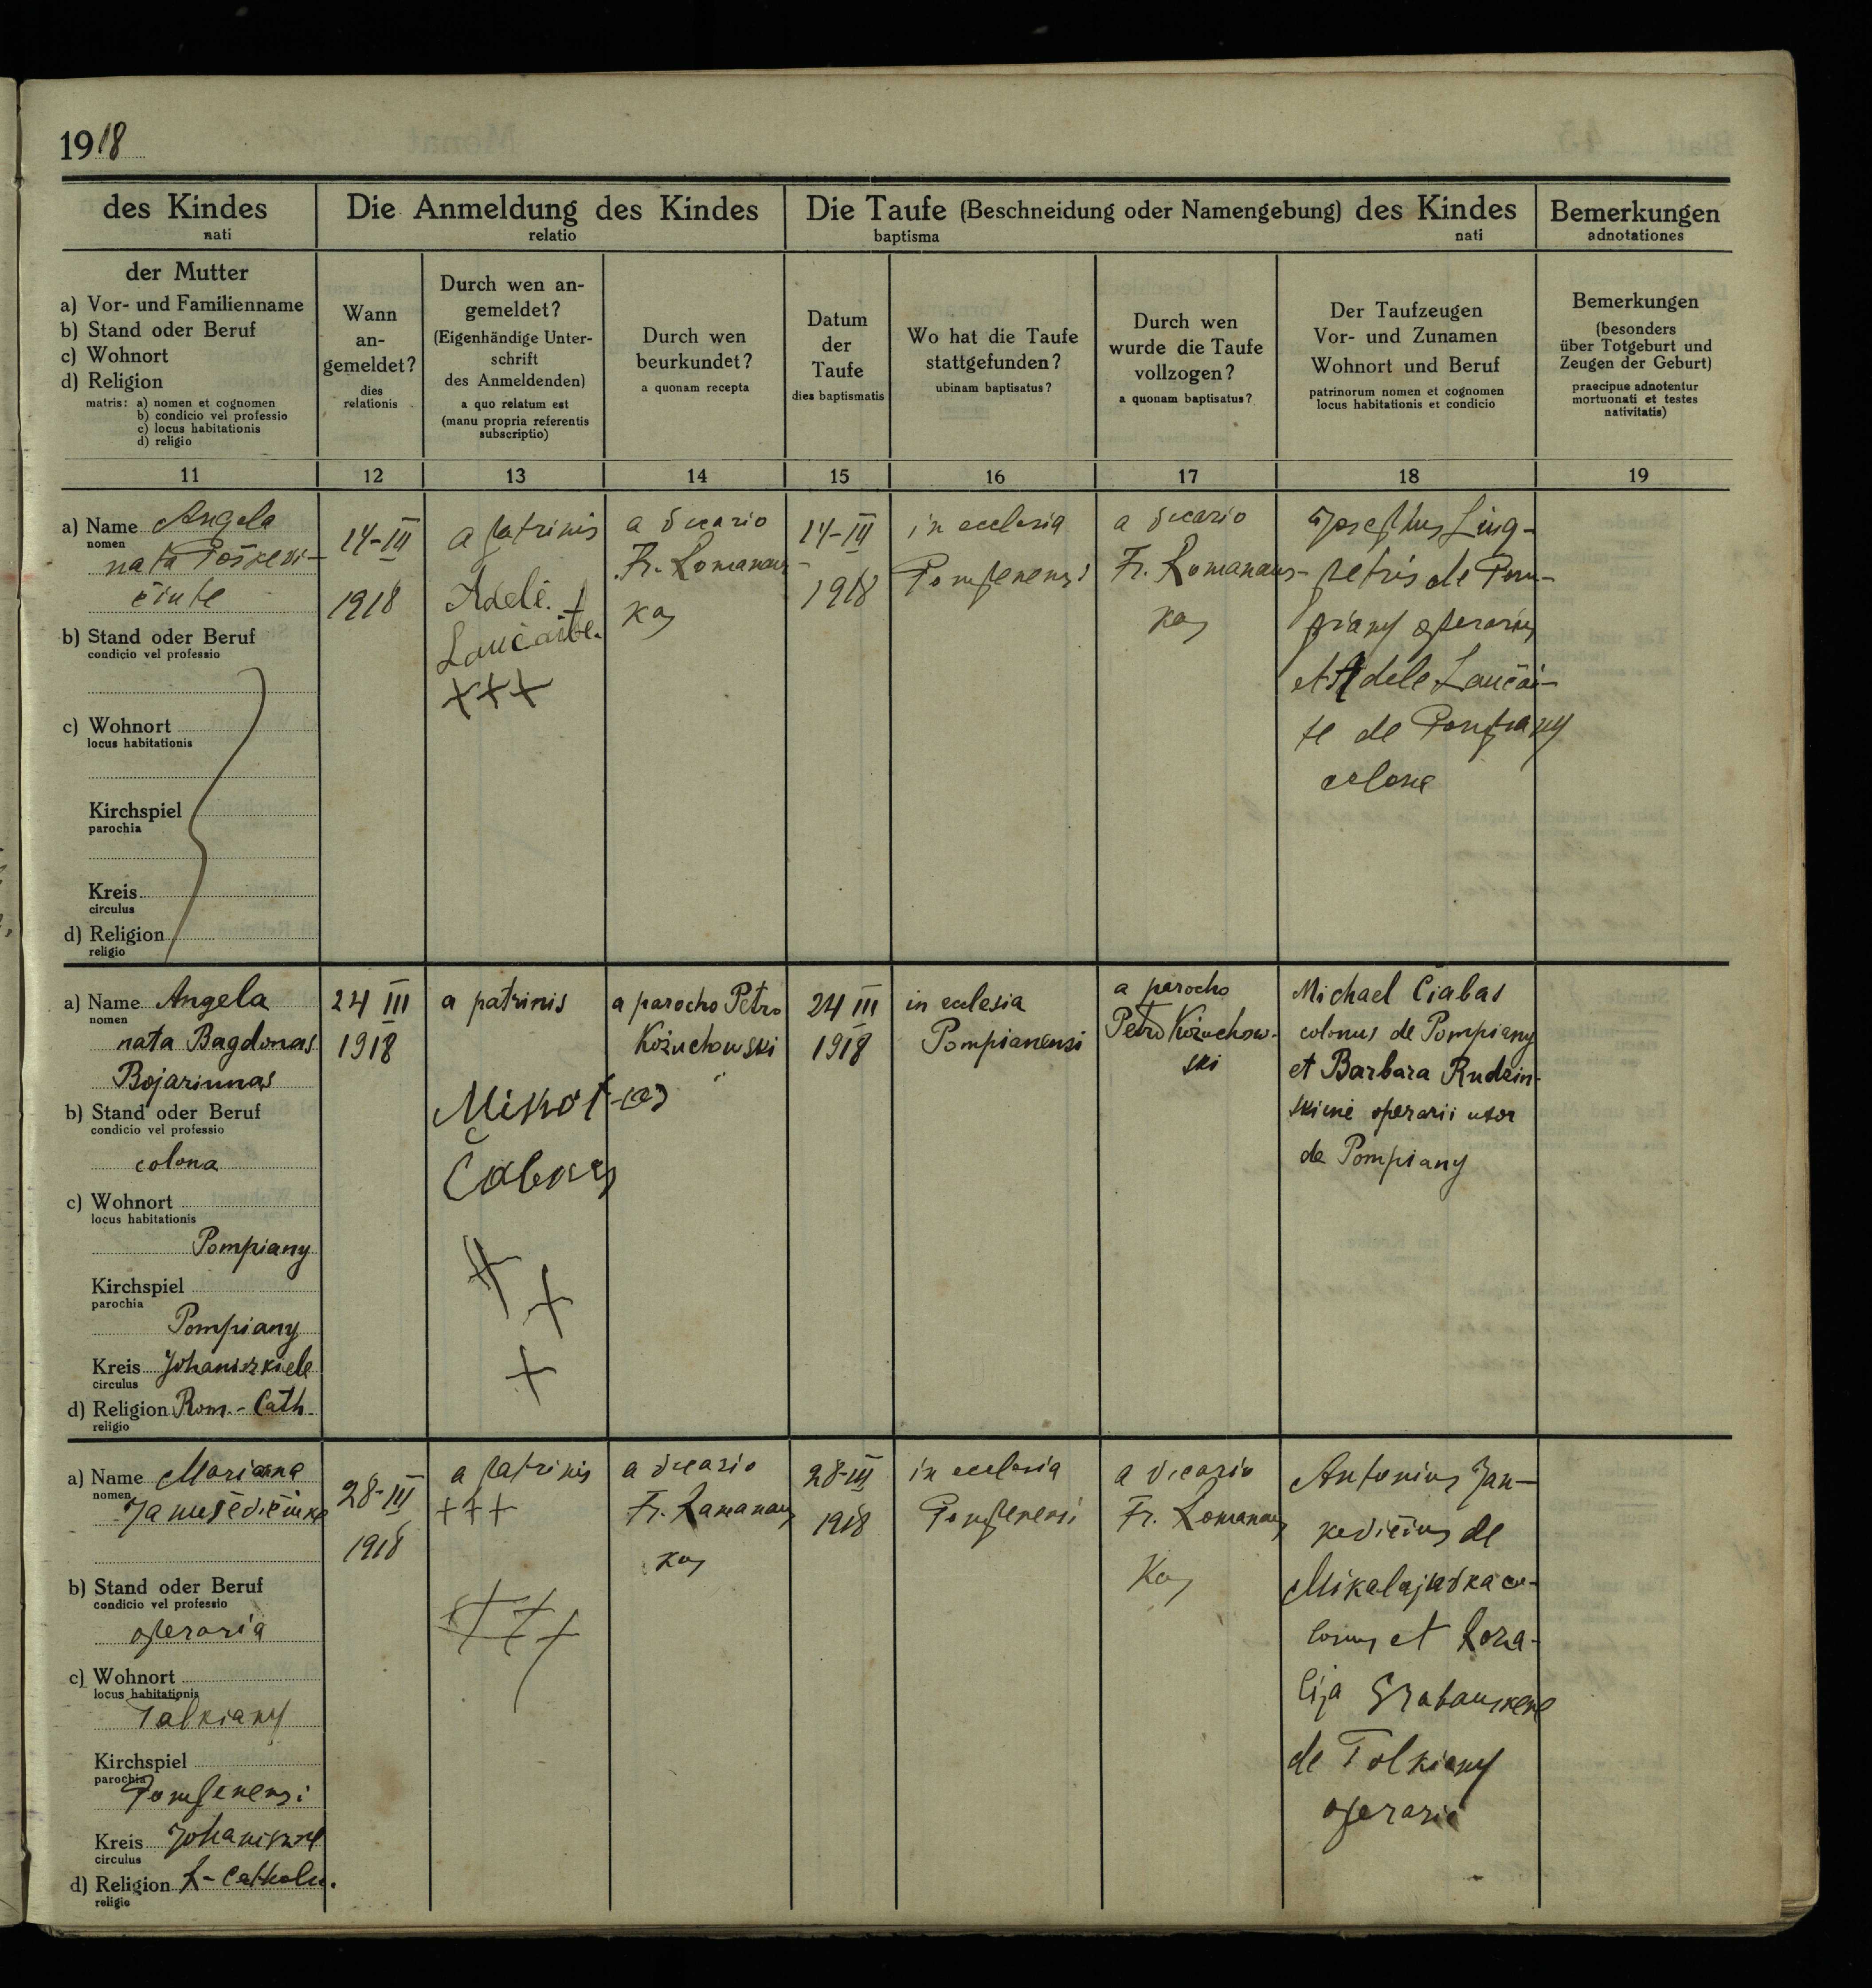 1918
des Kindes
nati
Die Anmeldung des Kindes
relatio
Die Taufe (Beschneidung oder Namengebung) des Kindes
baptisma nati
Bemerkungen
adnotationes
der Mutter
a) Vor- und Familienname
b) Stand oder Beruf
c) Wohnort
d) Religion
matris: a) nomen et cognomen
b) condicio vel professio
c) locus habitationis
d) religio
Wann
an-
gemeldet?
dies
relationis
Durch wen an-
gemeldet?
(Eigenhändige Unter-
schrift
des Anmeldenden)
a quo relatum est
(manu propria referentis
subscriptio)
Durch wen
beurkundet?
a quonam recepta
Datum
der
Taufe
dies baptismatis
Wo hat die Taufe
stattgefunden?
ubinam baptisatus?
Durch wen
wurde die Taufe
vollzogen?
a quonam baptisatus?
Der Taufzeugen
Vor- und Zunamen
Wohnort und Beruf
patrinorum nomen et cognomen
locus habitationis et condicio
Bemerkungen
(besonders
über Totgeburt und
Zeugen der Geburt)
praecipue adnotentur
mortuonati et testes
nativitatis)
11 12 13 14 15 16 17 18 19
a) Name Angela
nomen
nata Poškevi-
čiute
b) Stand oder Beruf
condicio vel professio
c) Wohnort
locus habitationis
Kirchspiel
parochia
Kreis
circulus
d) Religion
religio
14-III
1918
a patrinis
Adelė
Laučaite.
+++
a vicario
Fr. Romanaus-
kas
14-III
1918
in ecclesia
Pompenensi
a vicario
Fr. Romanaus-
kas
Josephus Ling-
petris de Pom-
piany operarius
et Adele Laučai-
te de Pompiany
colona
a) Name Angela
nomen
nata Bagdonas
Bojariunas
b) Stand oder Beruf
condicio vel professio
colona
c) Wohnort
locus habitationis
Pompiany
Kirchspiel
parochia
Pompiany
Kreis Johaniszkiele
circulus
d) Religion Rom.-Cath.
religio
24 III
1918
a patrinis
+
+
+
a parocho Petro
Kożuchowski
24 III
1918
in ecclesia
Pompianensi
a parocho
Petro Kożuchow-
ski
Michael Ciabas
colonus de Pompiany
et Barbara Rudzin-
skienė operarii uxor
de Pompiany
a) Name Marianna
nomen
b) Stand oder Beruf
condicio vel professio
operaria
c) Wohnort
locus habitationis
Talkiany
Kirchspiel
parochia
Pompenensi
Kreis
circulus
d) Religion R-Catholic.
religio
28-III
1918
a patrinis
+++
+++
a vicario
Fr. Ramanaus
kas
28-III
1918
in ecclesia
Pompenensi
a vicario
Fr. Romanaus
kas
Antonius Jan-
kevičius de
Mikalajuška co-
lonus et Roza-
lija Grabauskene
de Tolkiany
operaria